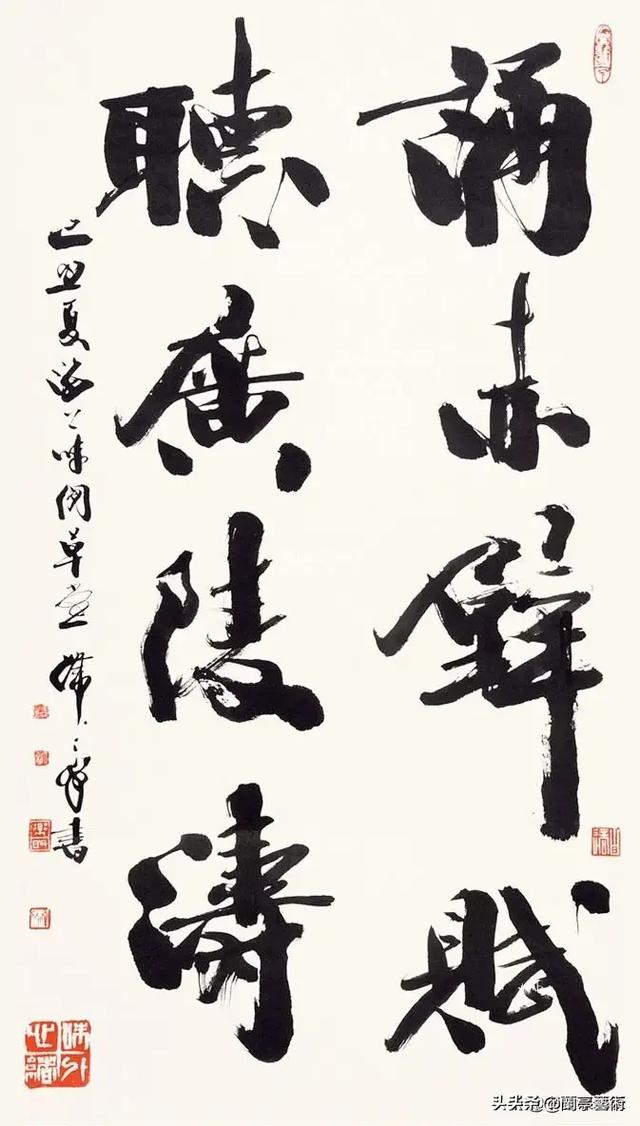 誦赤壁賦
聽廣陵濤
己丑夏海上味閒草堂書
头条@蘭亭藝術